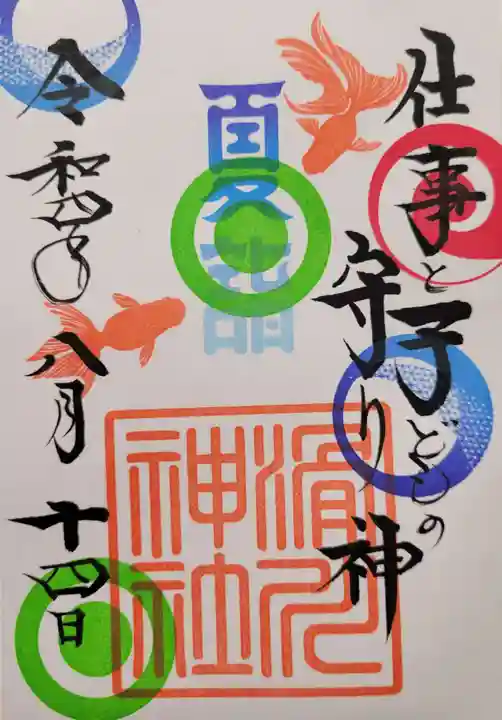 仕事と子どもの
守り神
夏詣
滑川
神社
令和四年八月十四日